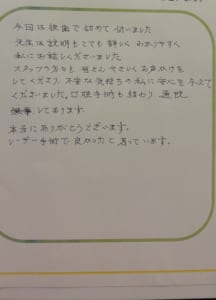 今回は検査で初めて伺いました
先生は説明もとても詳しくわかりやすく
私にお話しくださいました
スタッフの方々も皆さんやさしくお声かけを
してくださり、不安な気持ちの私に安心を与えて
くださいました。日帰手術も終わり 通院
しております。
本当にありがとうございます。
レーザー手術で良かったと思っています。